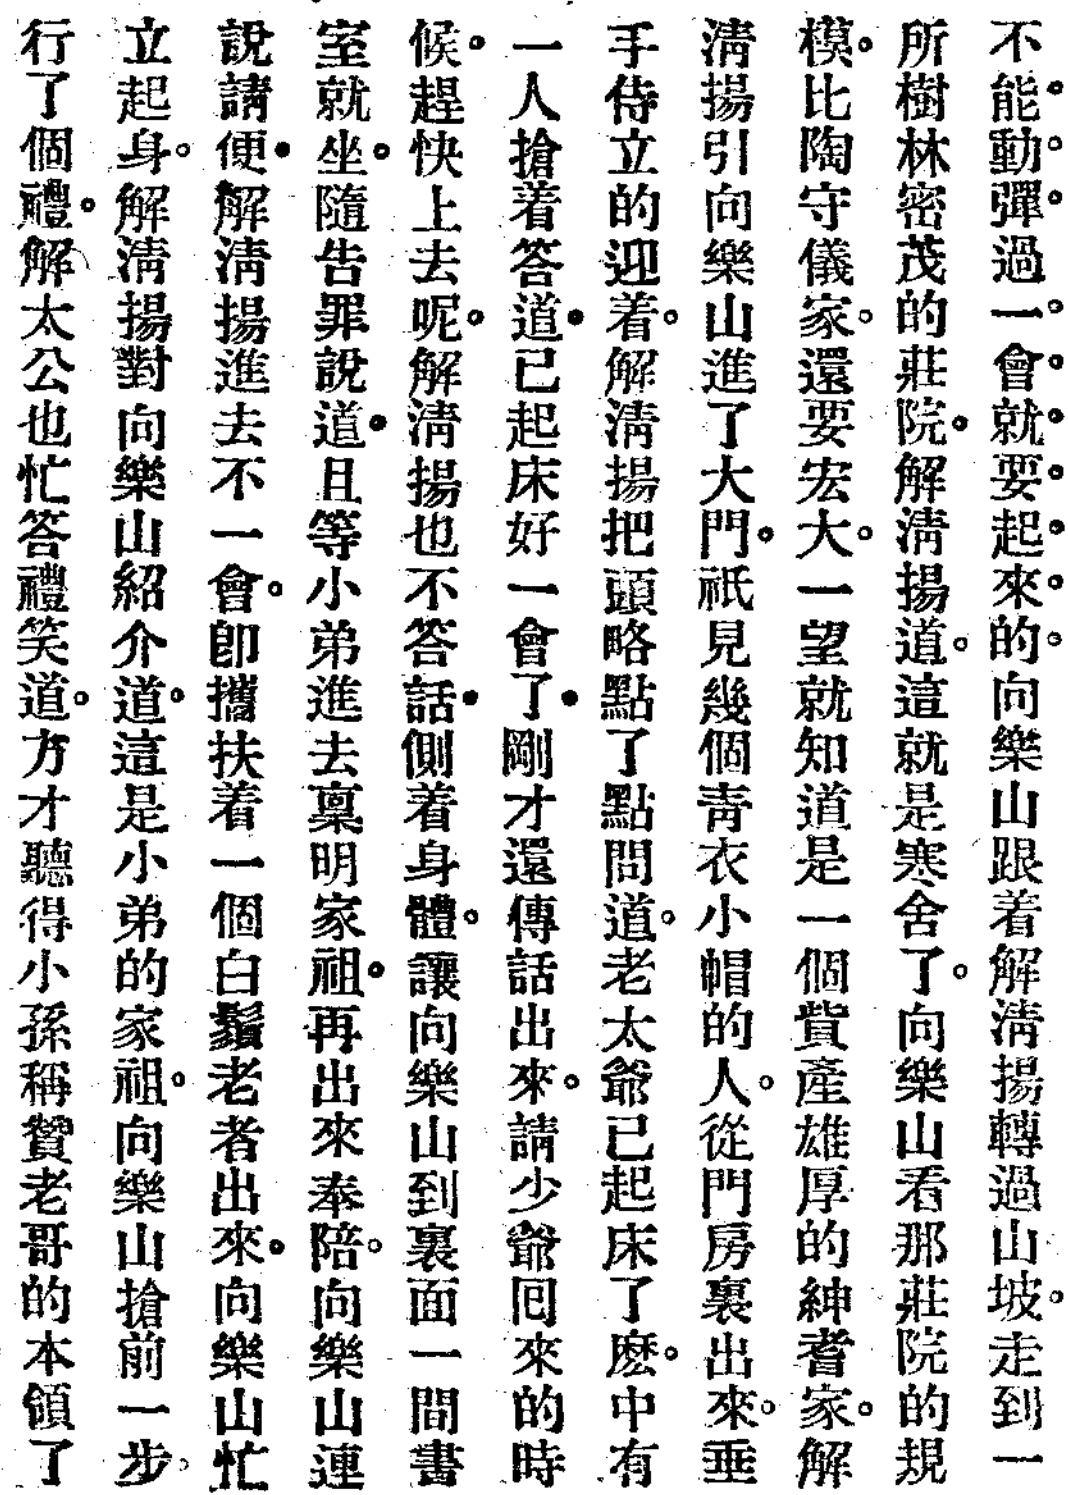 不能。動。彈。過一。會。就。要。起。來。的。向樂山跟着解淸揚轉過山坡。走到一
所樹林密茂的莊院。解淸揚道。這就是寒舍了。向樂山看那莊院的規
模。比陶守儀家。還要宏大。一望就知道是一個貲產雄厚的紳耆家。解
淸揚引向樂山進了大門。祇見幾個靑衣小帽的人。從門房裏出來。垂
手侍立的迎着。解淸揚把頭略點了點問道。老太爺已起床了麽。中有
一人搶着答道。已起床好一會了。剛才還傳話出來。請少爺囘來的時
候。趕快上去呢。解淸揚也不答話。側着身體。讓向樂山到裏面一間書
室就坐。隨告罪說道。且等小弟進去稟明家祖。再出來奉陪。向樂山連
說請便。解淸揚進去不一會。卽攜扶着一個白鬚老者出來。向樂山忙
立起身。解淸揚對向樂山紹介道。這是小弟的家祖。向樂山搶前一步。
行了個禮。解太公也忙答禮笑道。方才聽得小孫稱贊老哥的本領了